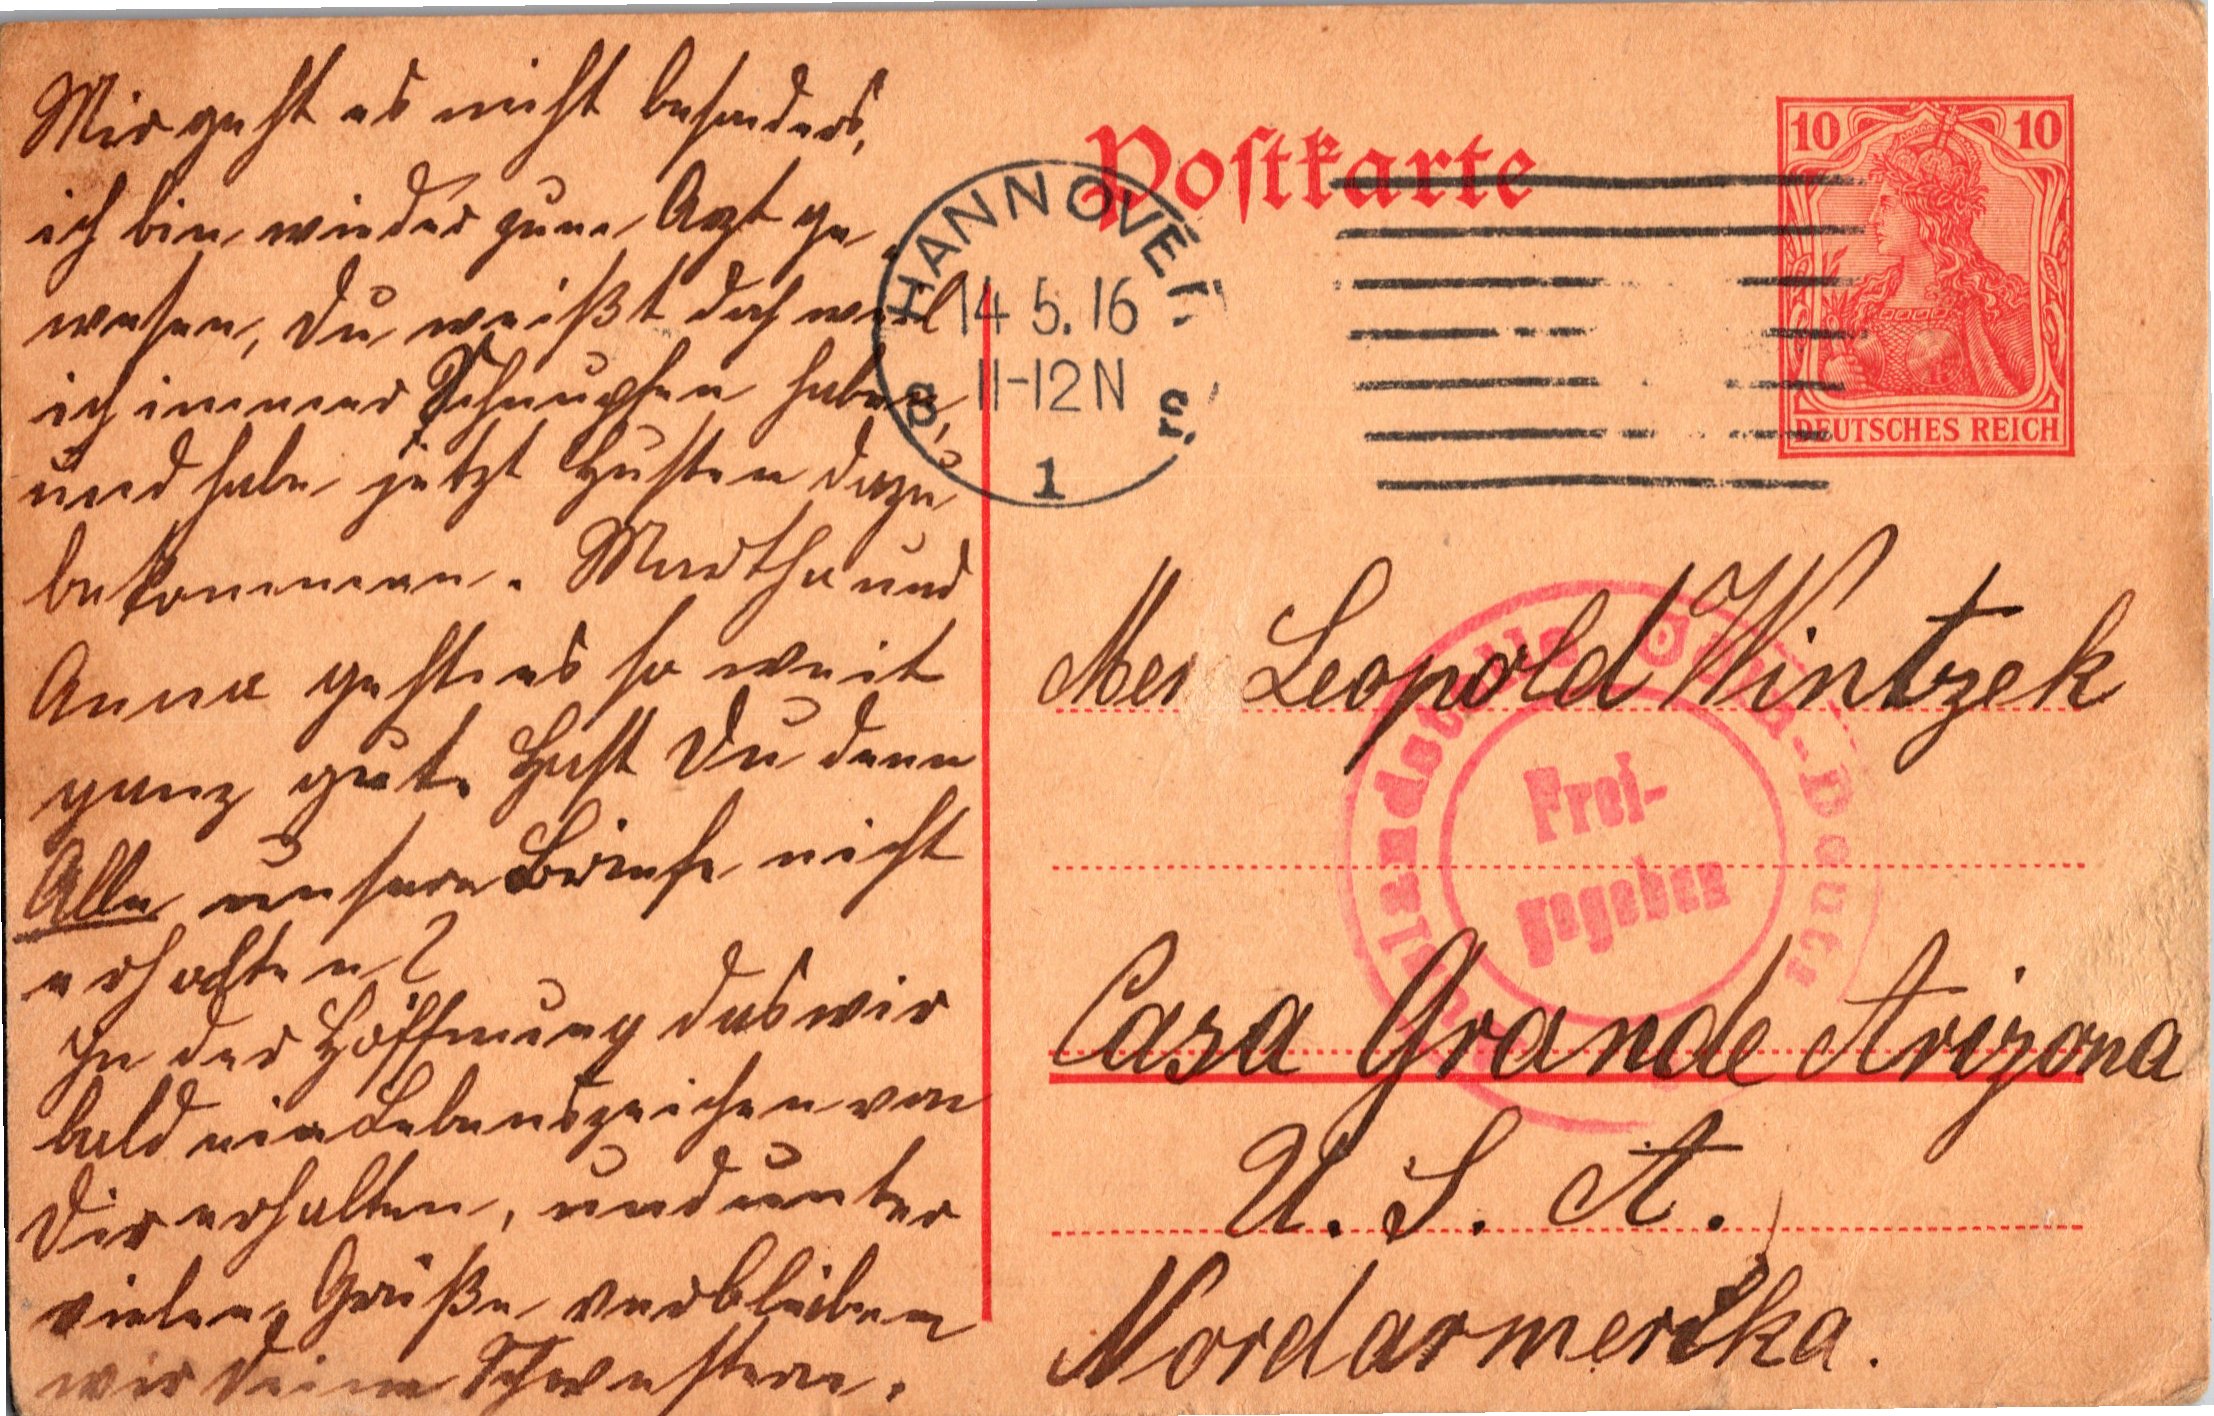 Mir geht es nicht besonders,
ich bin wieder zum Arzt ge
wesen, Du weißt doch weil
ich immer Schnupfen habe,
und habe jetzt Husten dazu
bekommen. Martha und
Anna geht es so weit
ganz gut. Hast Du denn
Alle unsere Briefe nicht
erhalten?
In der Hoffnung das wir
bald ein Lebenszeichen von
Dir erhalten, und unter
vielen Grüße verbleiben
wir Deine Schwestern.
Postkarte
HANNOVER
14 5. 16
11-12 N
1
10 10
DEUTSCHES REICH
Leopold Wintzek
Frei-
gegeben
Casa Grande Arizona
U. S. A.
Nordarmerika.